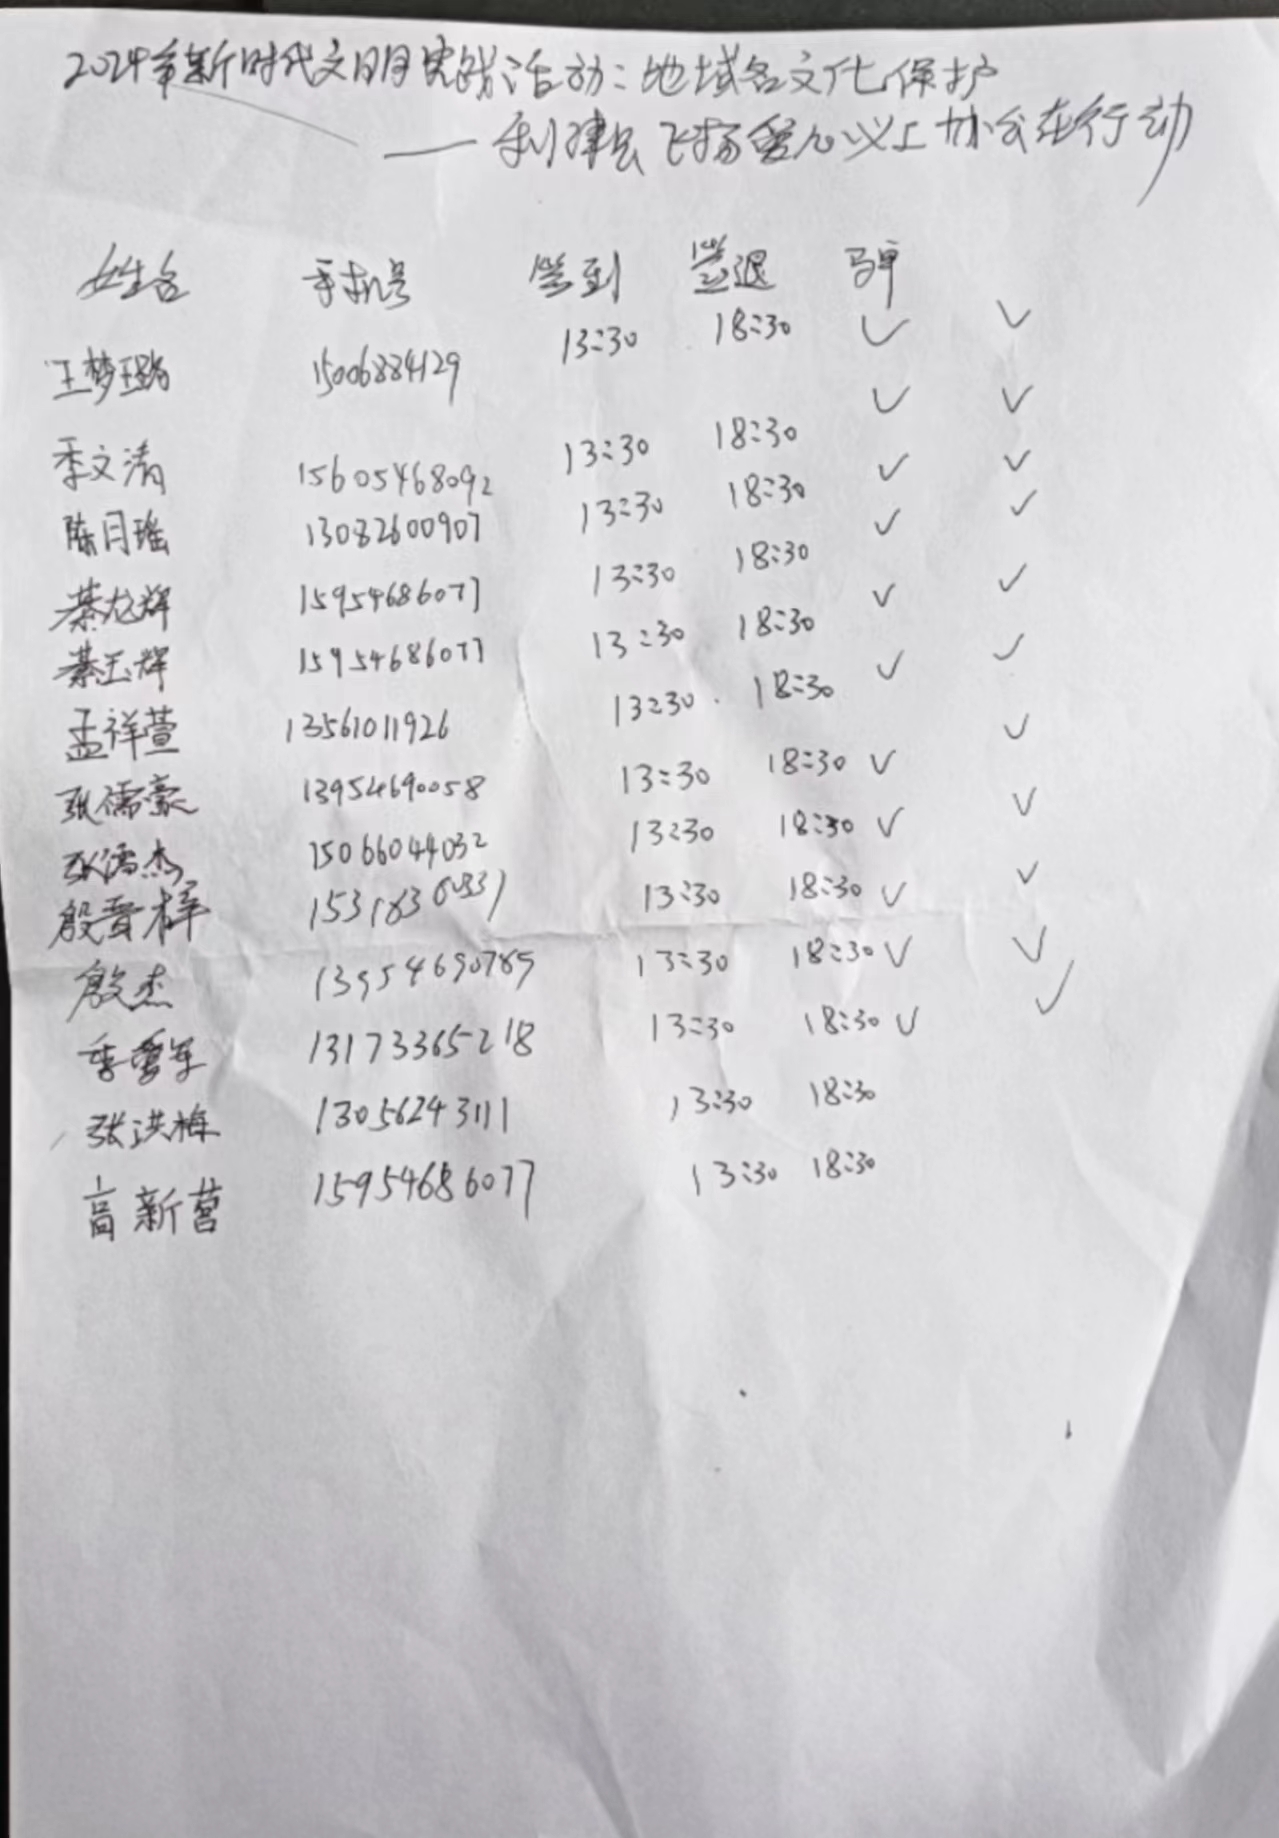 2024年新时代文明实践活动：地域名文化保护
——利津县飞扬爱心义工协会在行动
姓名 手机号 签到 签退 马甲
王梦璐 15006884129 13:30 18:30 ✓ ✓
季文清 15605468092 13:30 18:30 ✓ ✓
陈月瑶 13082600907 13:30 18:30 ✓ ✓
綦龙辉 15954686077 13:30 18:30 ✓ ✓
綦玉辉 15954686077 13:30 18:30 ✓ ✓
孟祥萱 13561011926 13:30 18:30 ✓ ✓
张儒豪 13954690058 13:30 18:30 ✓ ✓
张儒杰 15066044032 13:30 18:30 ✓ ✓
殷晋梓 13:30 18:30 ✓ ✓
殷杰 13954690789 13:30 18:30 ✓ ✓
季爱军 13173365218 13:30 18:30 ✓ ✓
张洪梅 13056243111 13:30 18:30
高新营 15954686077 13:30 18:30